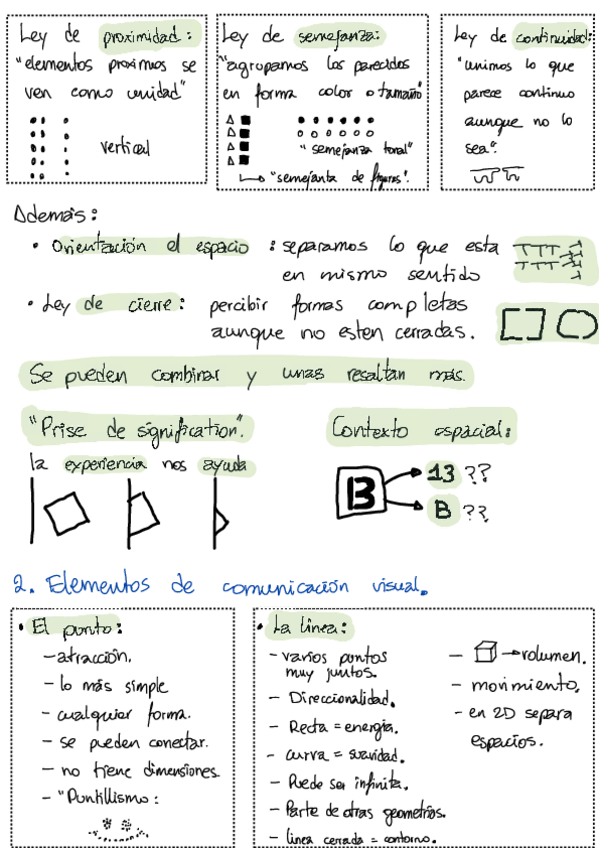 Ley de proximidad:
"elementos proximos se
ven como unidad"
vertical
Ley de semejanza:
"agrupamos los parecidos
en forma color o tamaño"
"semejanza tonal"
"semejanta de figuras".
Ley de continuidad:
"unimos lo que
parece continuo
aunque no lo
sea".
Además:
• Orientación el espacio : separamos lo que esta
en mismo sentido
• Ley de cierre: percibir formas completas
aunque no esten cerradas.
Se pueden combinar y unas resaltan más.
"Prise de signification".
la experiencia nos ayuda
Contexto espacial:
13
13 ??
B ??
2. Elementos de comunicación visual.
• El punto:
- atracción.
- lo más simple
- cualquier forma.
- se pueden conectar.
- no tiene dimensiones.
- "Puntillismo:
• La linea:
- varios puntos
muy juntos.
- Direccionalidad.
- Recta = energía.
- curva = suavidad.
- Puede ser infinita.
- Parte de otras geometrías.
- linea cerrada = contorno.
- → volumen.
- movimiento.
- en 2D separa
espacios.